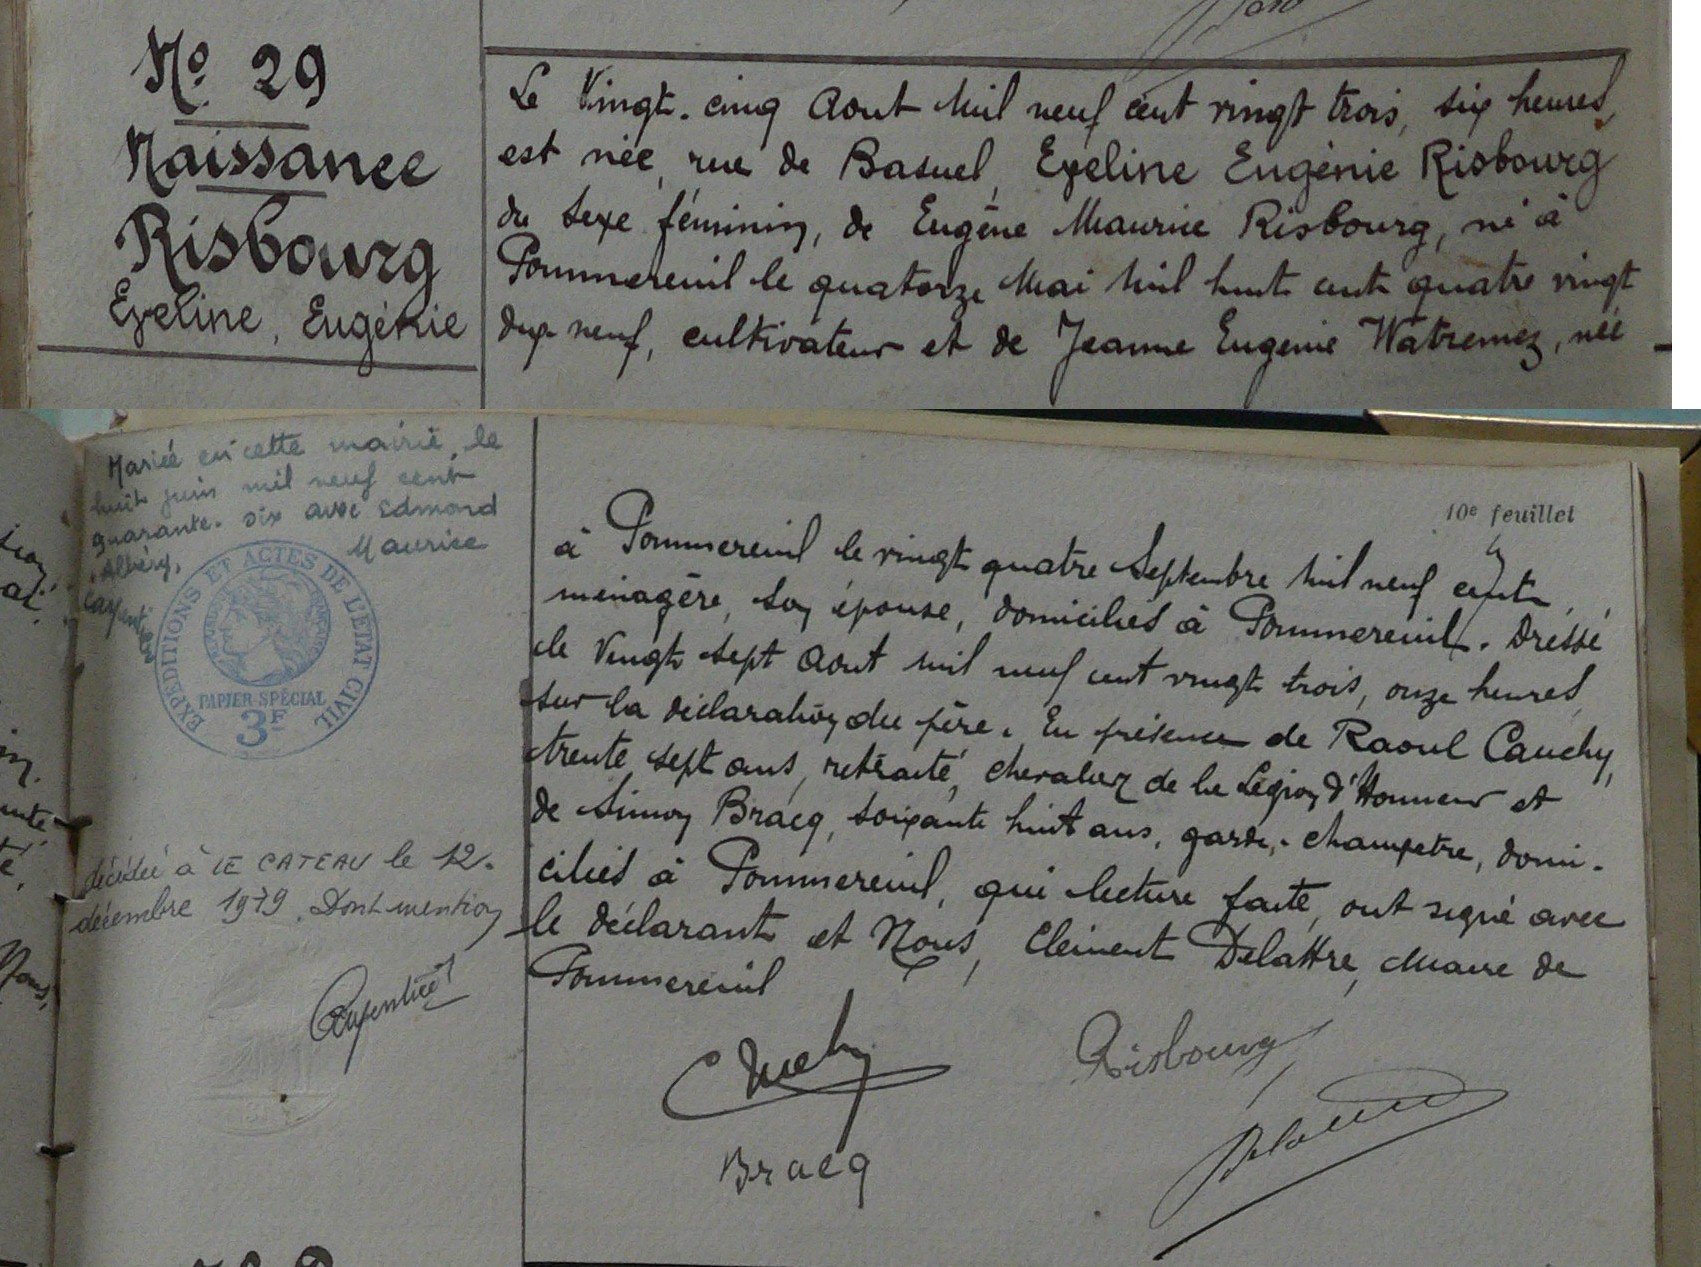 No 29
Naissance
Risbourg
Eveline, Eugénie
Le Vingt-cinq Aout Mil neuf cent vingt trois, six heures,
est née, rue de Basuel, Eveline Eugénie Risbourg
du sexe féminin, de Eugène Maurice Risbourg, né à
Pommereuil le quatorze Mai Mil huit cent quatre vingt
dix-neuf, cultivateur et de Jeanne Eugenie Watremez, née
10e feuillet
à Pommereuil le vingt quatre Septembre Mil neuf cent,
ménagère, son épouse, domiciliés à Pommereuil. Dressé
le Vingt sept Aout mil neuf cent vingt trois, onze heures,
sur la déclaration du père. En présence de Raoul Cauchy,
trente sept ans, retraité, chevalier de la Légion d'Honneur et
de Simon Bracq, soixante huit ans, garde-champetre, domi-
ciliés à Pommereuil, qui lecture faite, ont signé avec
le déclarant et Nous, Clément Delattre, Maire de
Pommereuil
Cauchy
Risbourg
Bracq
Delattre
Mariée en cette mairie, le
huit juin mil neuf cent
quarante-six avec Edmond
Maurice
Albéry,
Carpentier
EXPEDITIONS ET ACTES DE L'ETAT CIVIL
PAPIER SPÉCIAL
3F
décédée à LE CATEAU le 12
décembre 1979. Dont mention
Carpentier